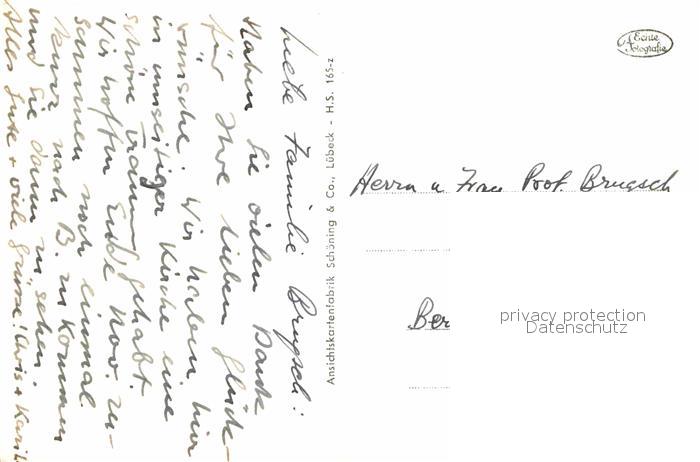 Liebe Familie Brugsch!
Haben Sie vielen Dank
für Ihre lieben Glück-
wünsche. Wir haben hier
in umseitiger Kirche eine
schöne Trauung gehabt.
Wir hoffen Ende Nov. zu-
sammen noch einmal
kurz nach B. zu kommen
und Sie dann zu sehen.
Alles Gute + viele Grüsse! Chris + Karin
Ansichtskartenfabrik Schöning & Co., Lübeck - H.S. 165-z
Echte Fotografie
Herrn u Frau Prof. Brugsch
Ber
privacy protection
Datenschutz